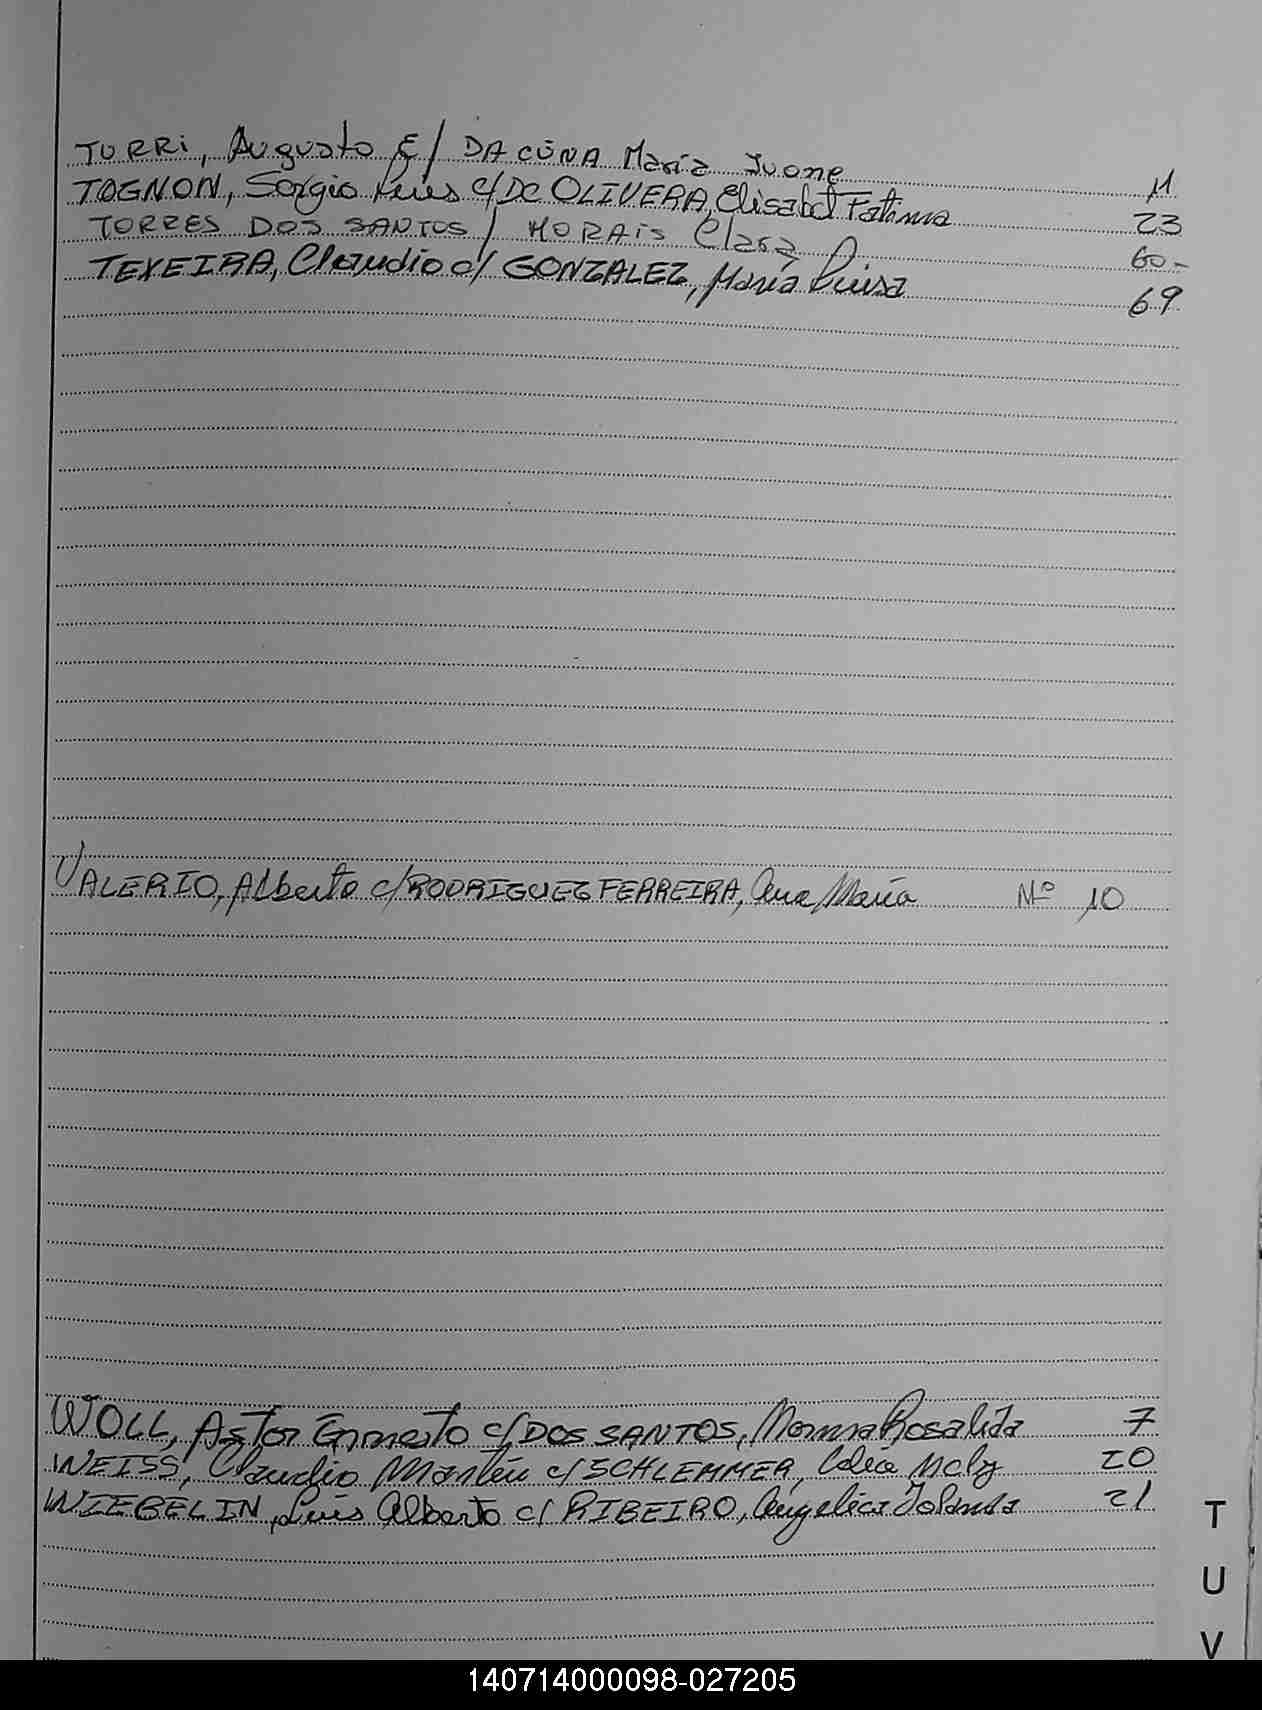 TURRi, Augusto C/ DA CUNA Maria Ivone 11
TOGNON, Sergio Luis c/DE OLIVERA, Elisabet Fatima 23
TORRES DOS SANTOS / MORAIS Clara 60-
TEXEIRA, Claudio c/ GONZALEZ, María Luisa 69
VALERIO, Alberto c/RODRIGUEZ FERREIRA, Ana María Nº 10
WOLL, Astor Ernesto c/DOS SANTOS, Rosalida 7
WEISS, Claudio c/ SCHLEMMER, 20
WIEBELIN, Luis Alberto c/ RIBEIRO, Angelica Iolanda 21
T
U
V
140714000098-027205